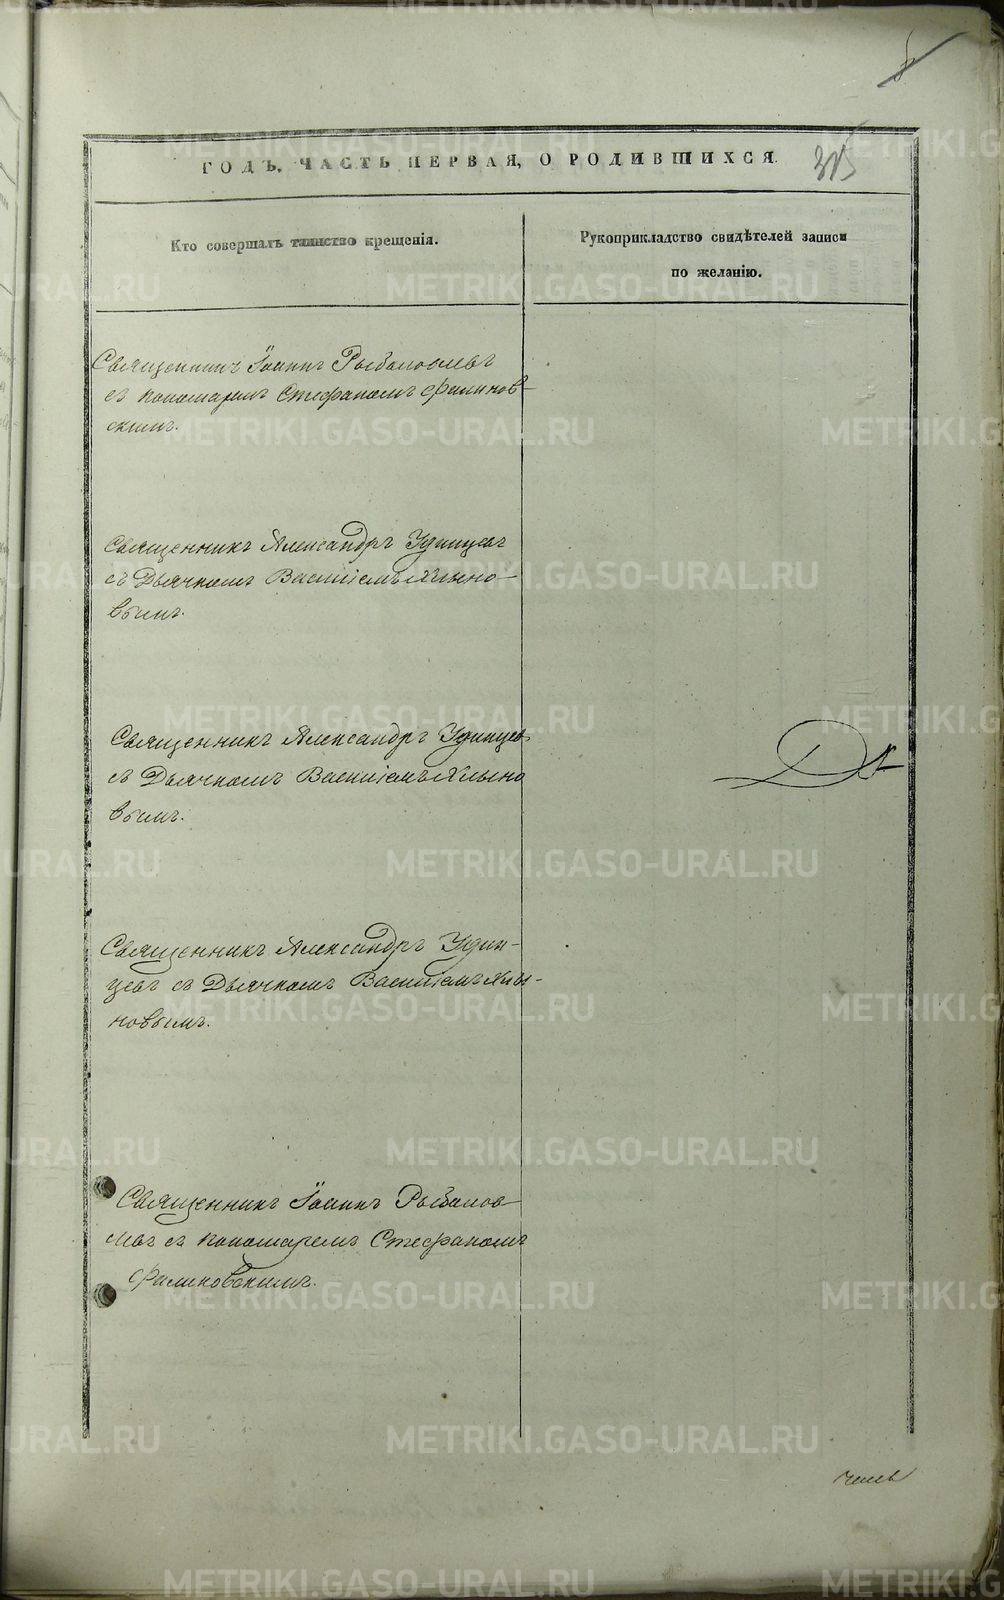 ГОДЪ, ЧАСТЬ ПЕРВАЯ, О РОДИВШИХСЯ. 315
Кто совершалъ таинство крещенія.
Рукоприкладство свидѣтелей записи
по желанію.
Священникъ Іоаннъ Рыболовлевъ
съ пономаремъ Стефаномъ Фаминов-
скимъ.
Священникъ Александръ Удинцевъ
съ Дьячкомъ Василіемъ Хлыно-
вымъ.
Священникъ Александръ Удинцевъ
съ Дьячкомъ Василіемъ Хлыно
вымъ.
Священникъ Александръ Удин-
цевъ съ Дьячкомъ Василіемъ Хлы-
новымъ.
Священникъ Іоаннъ
съ пономаремъ Стефаномъ
METRIKI.GASO-URAL.RU